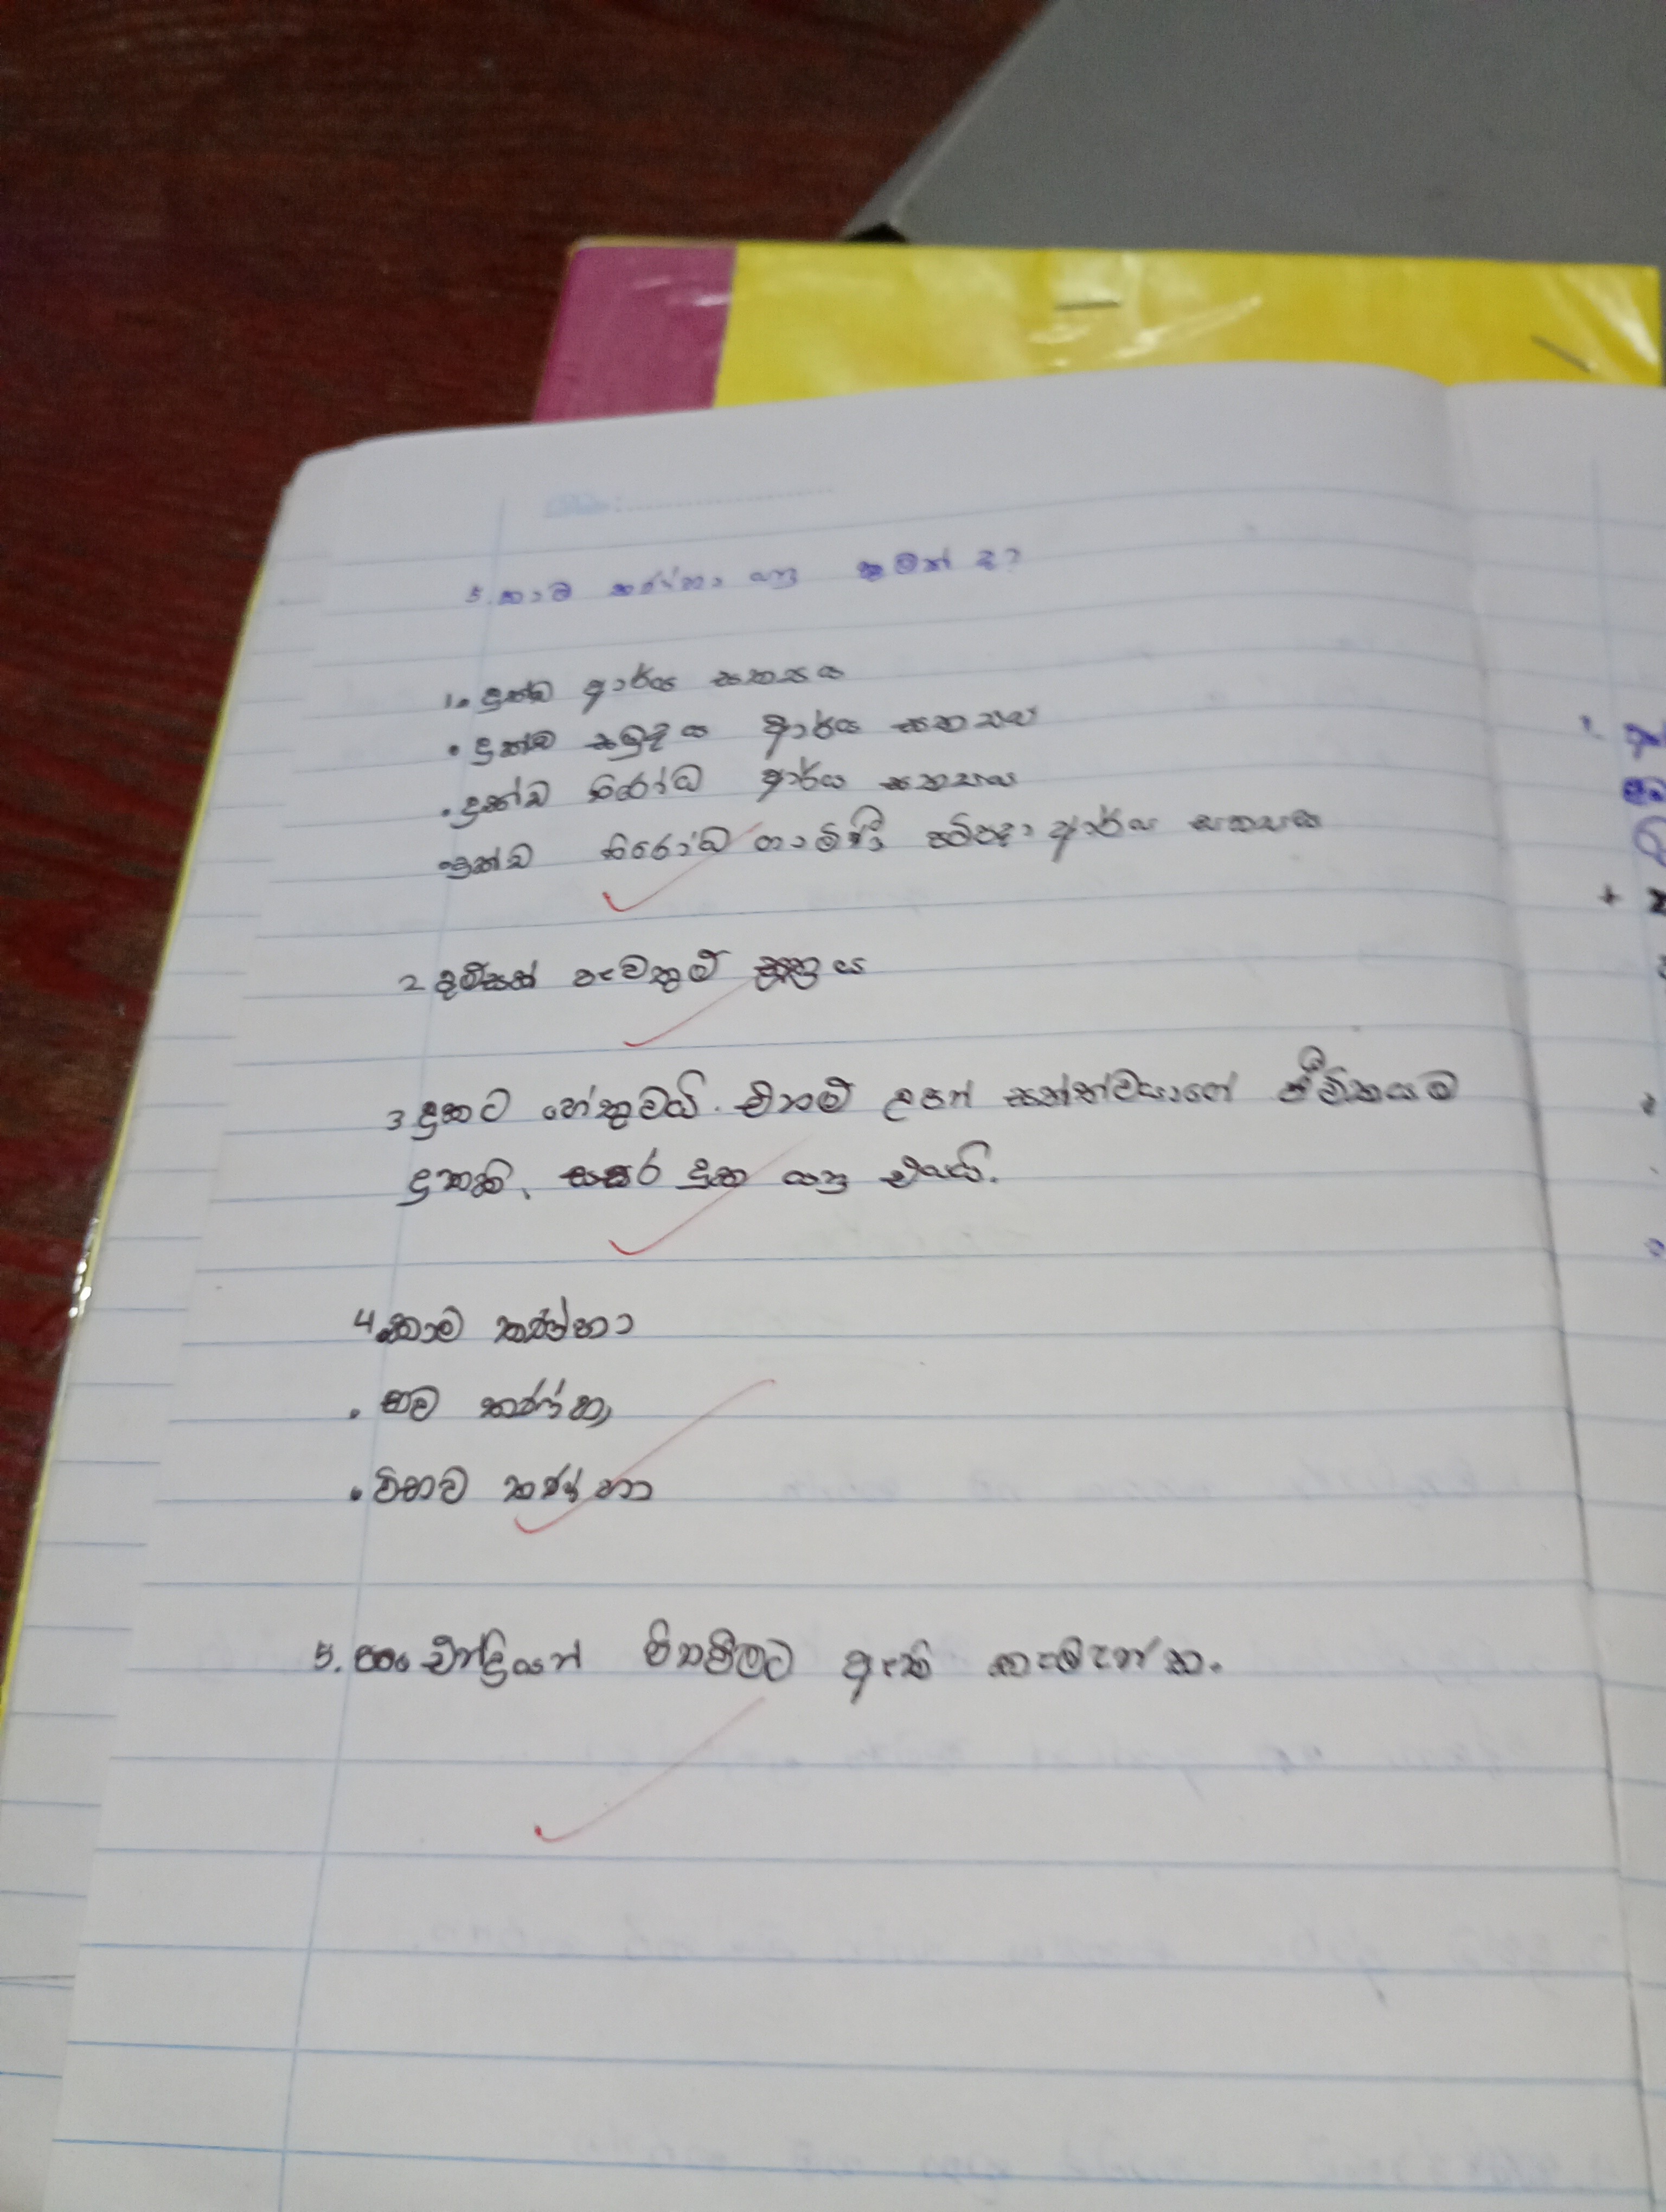 දිනය: ....................
5. කාම තණ්හා යනු කුමක් ද?
1. දුක්ඛ ආර්ය සත්‍යය
• දුක්ඛ සමුදය ආර්ය සත්‍යය
• දුක්ඛ නිරෝධ ආර්ය සත්‍යය
• දුක්ඛ නිරෝධ ගාමිණී පටිපදා ආර්ය සත්‍යය
2 දම්සක් පැවතුම් සූත්‍රය
3 දුකට හේතුවයි. එනම් උපන් සත්ත්වයාගේ ජීවිතයම
දුකකි, සසර දුක යනු එයයි.
4. කාම තණ්හා
• භව තණ්හා
• විභව තණ්හා
5. පංච ඉන්ද්‍රියන් පිනවීමට ඇති කැමැත්ත.